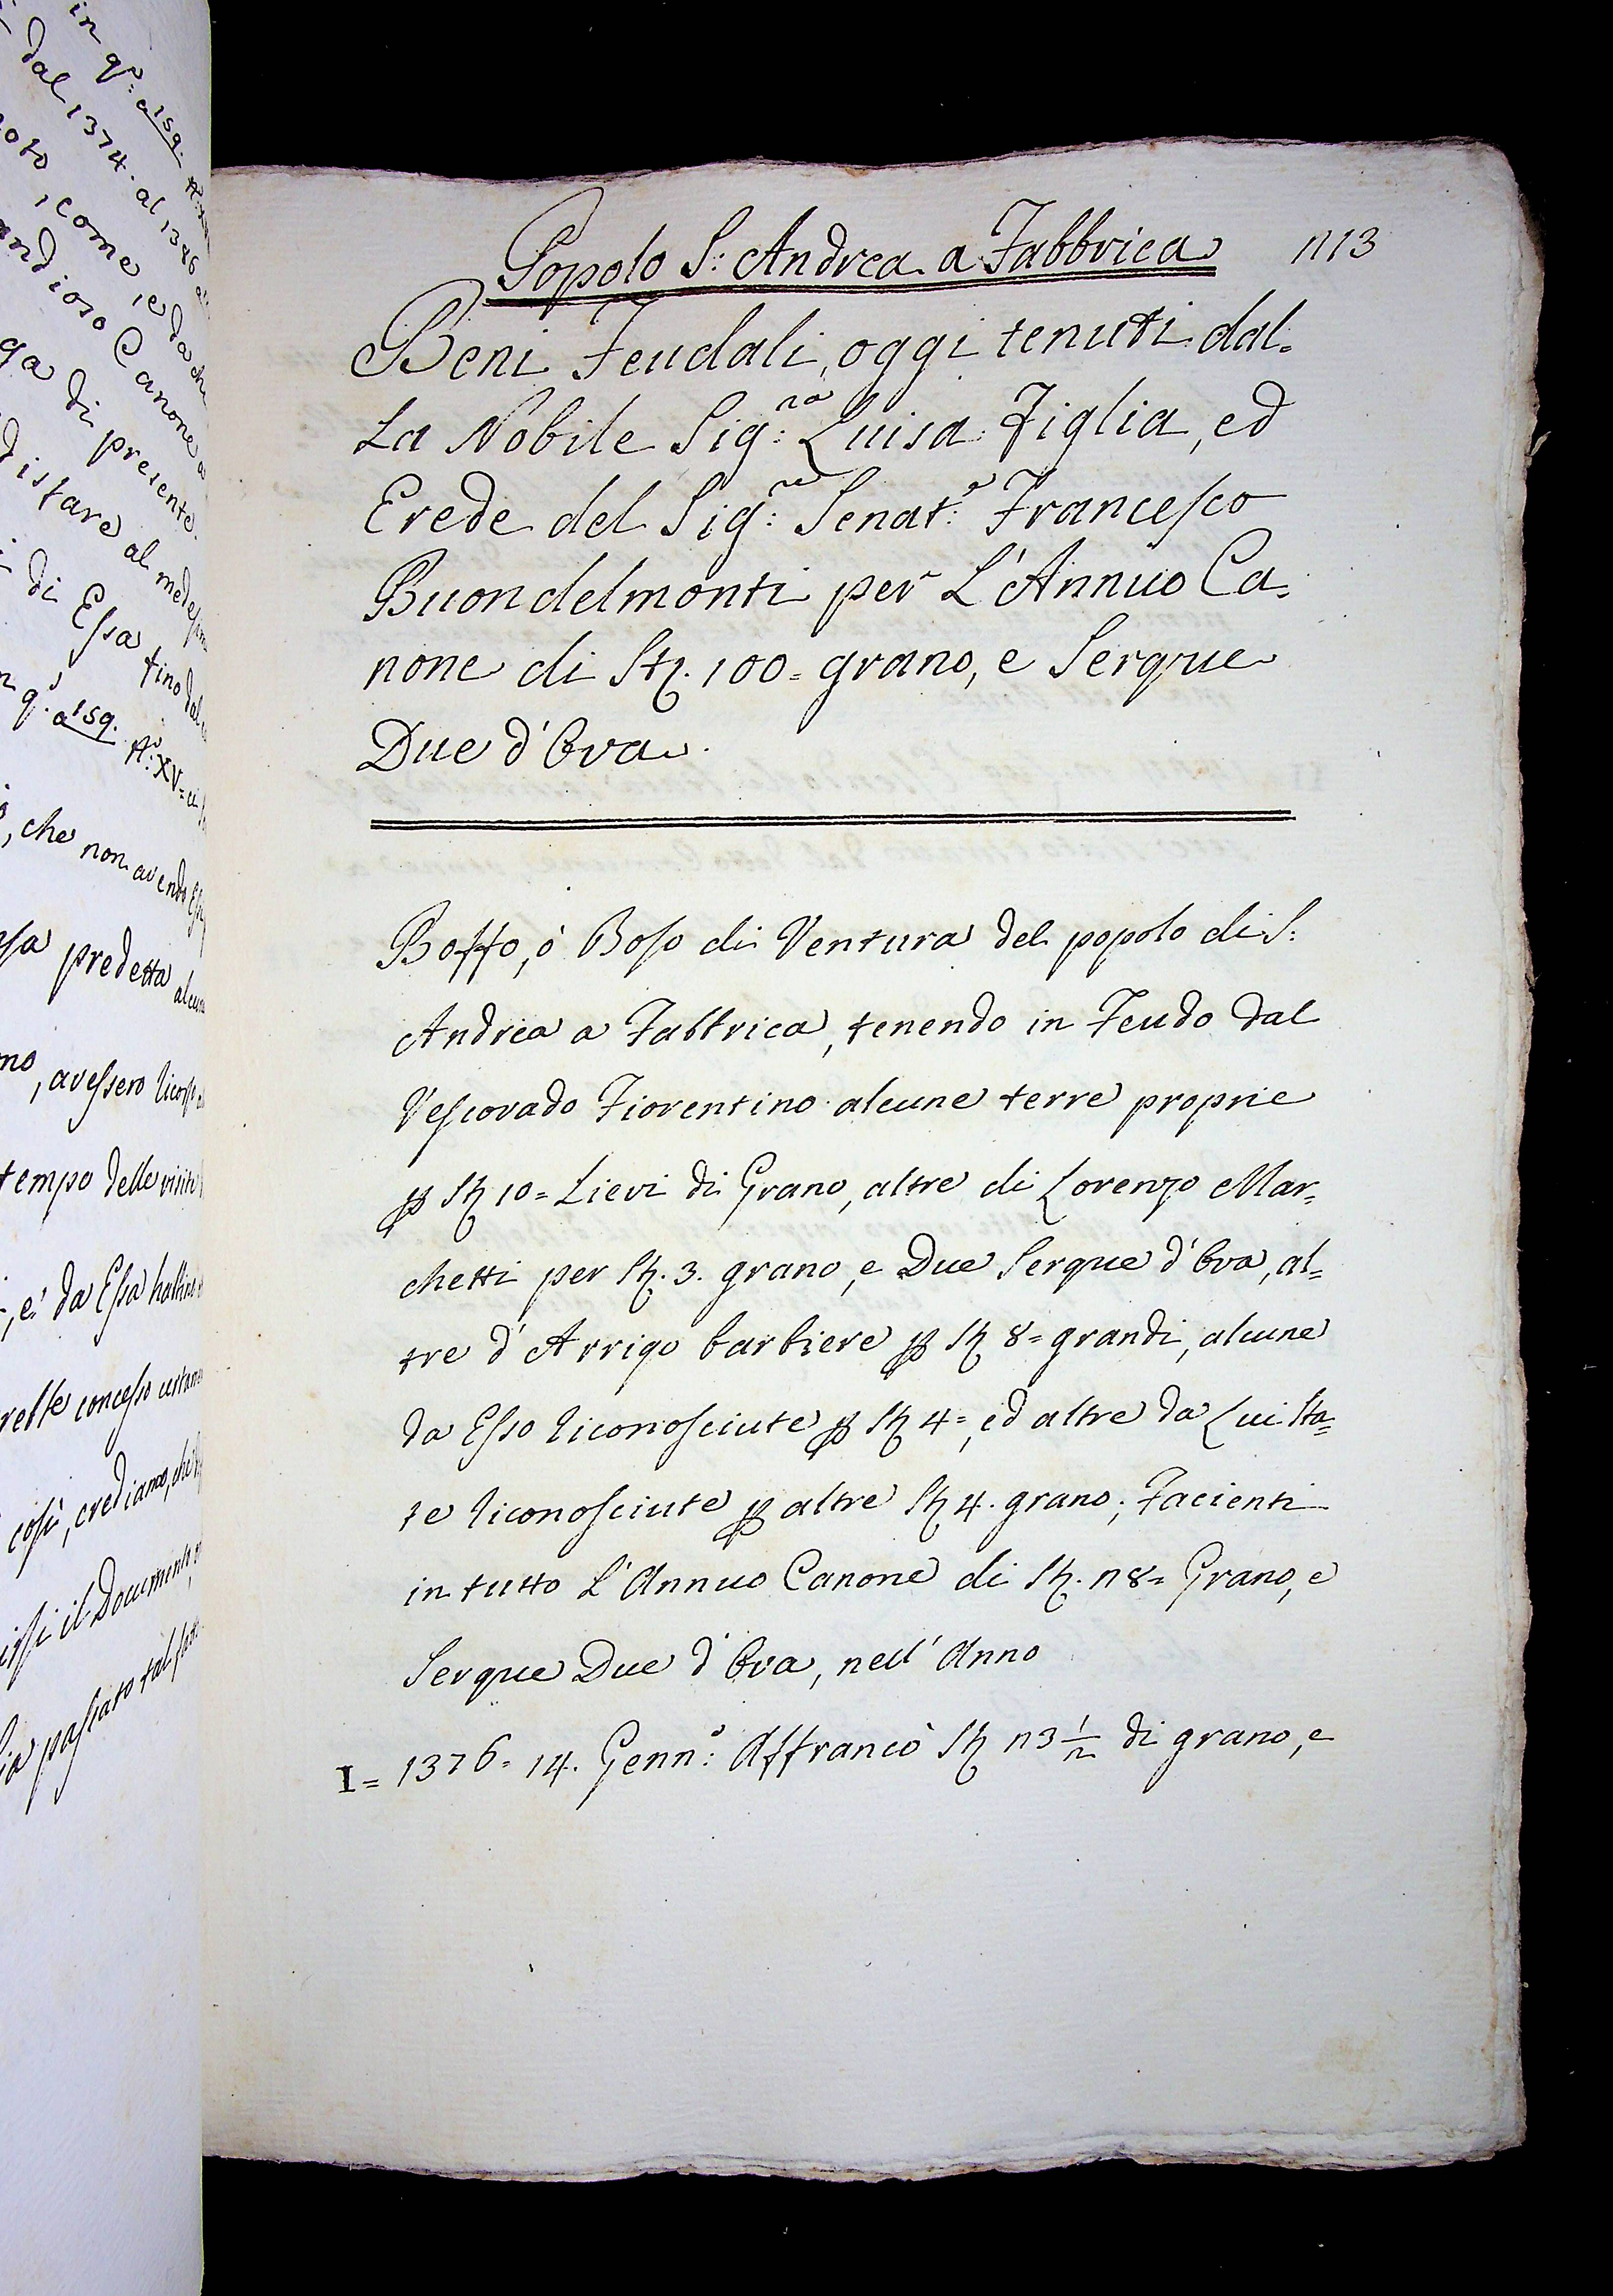 in q.º a 159.
dal 1374. al 1386
come, e da chi
Canone
ga di presente
distare al medesimo
di Essa fino dal
q.º a 159. A.º XV=
, che non avendo
predetta alcuna
, avessero
tempo delle visite
, e' da Essa
concesso
così, crediamo, che
il Documento
passato tal
Popolo S: Andrea a Fabbrica 213
Beni Feudali, oggi tenuti dal=
la Nobile Sig:ra Luisa Figlia, ed
Erede del Sig:re Senat:e Francesco
Buondelmonti per L'Annuo Ca=
none di St. 100= grano, e Serque
Due d'Ova.
Boffo, ò Boso di Ventura del popolo di S:
Andrea a Fabbrica, tenendo in Feudo dal
Vescovado Fiorentino alcune terre proprie
p St 10= Lievi di Grano, altre di Lorenzo Mar=
chetti per St. 3. grano, e Due Serque d'Ova, al=
tre d'Arrigo barbiere p St 8= grandi, alcune
da Esso riconosciute p St 4=, ed altre da Lui sta=
te riconosciute p altre St 4. grano; Facienti
in tutto L'Annuo Canone di St. 28= Grano, e
Serque Due d'Ova, nell'Anno
I= 1376= 14. Genn:º Affrancò St 23 1/2 di grano, e